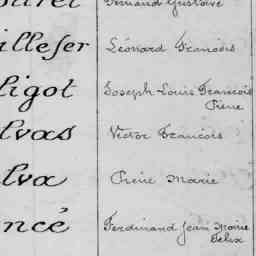 Fernand Gustave
illefer Léonard François
ligot Joseph Louis François
Pierre
lvas Victor François
lva René Marie
ncé Ferdinand Jean Marie
Félix